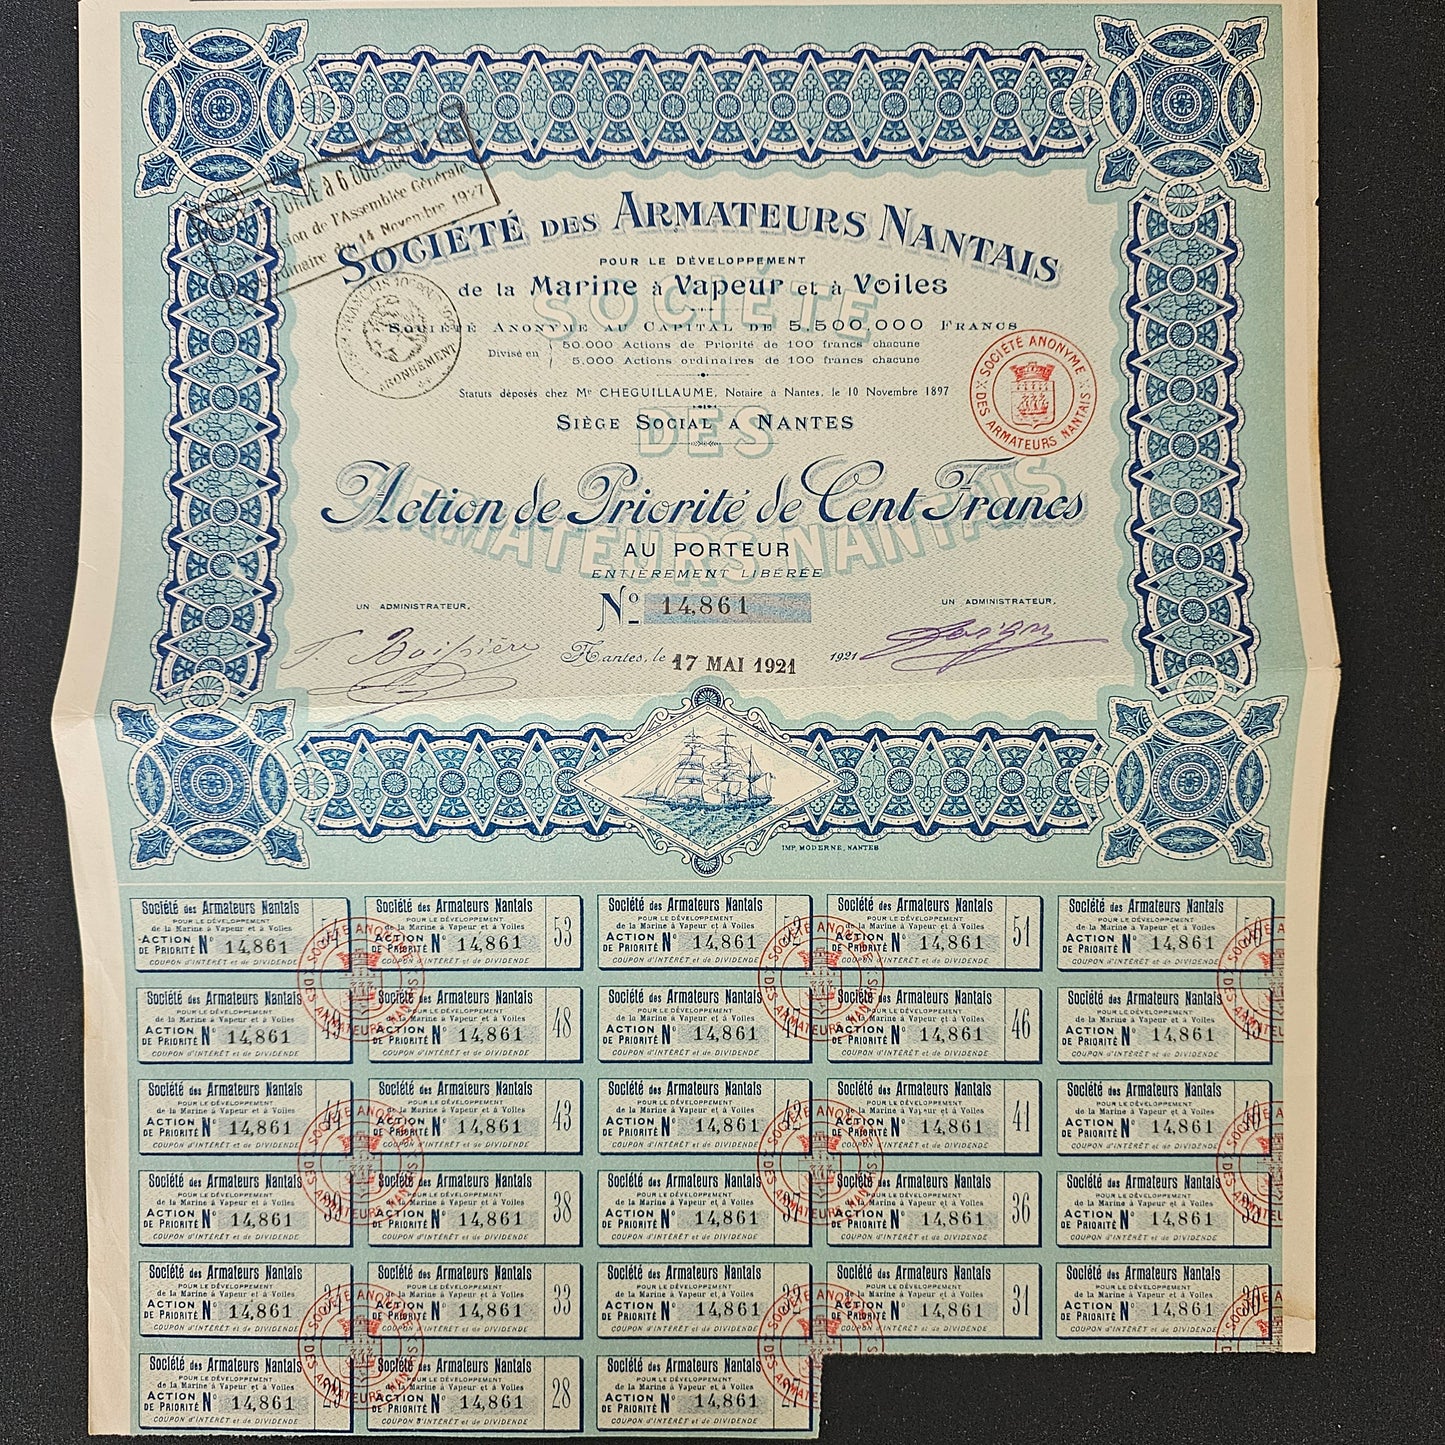 à 6.000.000 de
de l'Assemblée Générale
du 14 Novembre 1927
SOCIÉTÉ DES ARMATEURS NANTAIS
POUR LE DÉVELOPPEMENT
de la Marine à Vapeur et à Voiles
SOCIÉTÉ ANONYME AU CAPITAL DE 5.500.000 FRANCS
Divisé en
50.000 Actions de Priorité de 100 francs chacune
5.000 Actions ordinaires de 100 francs chacune
ABONNEMENT
SOCIÉTÉ ANONYME
DES ARMATEURS NANTAIS
Statuts déposés chez Me CHEGUILLAUME, Notaire à Nantes, le 10 Novembre 1897
SIÈGE SOCIAL A NANTES
SOCIÉTÉ
DES
ARMATEURS NANTAIS
Action de Priorité de Cent Francs
AU PORTEUR
ENTIÈREMENT LIBÉRÉE
No 14,861
UN ADMINISTRATEUR,
UN ADMINISTRATEUR,
Nantes, le 17 MAI 1921 1921
IMP. MODERNE, NANTES
Société des Armateurs Nantais
POUR LE DÉVELOPPEMENT
de la Marine à Vapeur et à Voiles
ACTION DE PRIORITÉ No 14,861
COUPON d'INTÉRÊT et de DIVIDENDE
54
Société des Armateurs Nantais
POUR LE DÉVELOPPEMENT
de la Marine à Vapeur et à Voiles
ACTION DE PRIORITÉ No 14,861
COUPON d'INTÉRÊT et de DIVIDENDE
53
Société des Armateurs Nantais
POUR LE DÉVELOPPEMENT
de la Marine à Vapeur et à Voiles
ACTION DE PRIORITÉ No 14,861
COUPON d'INTÉRÊT et de DIVIDENDE
52
Société des Armateurs Nantais
POUR LE DÉVELOPPEMENT
de la Marine à Vapeur et à Voiles
ACTION DE PRIORITÉ No 14,861
COUPON d'INTÉRÊT et de DIVIDENDE
51
Société des Armateurs Nantais
POUR LE DÉVELOPPEMENT
de la Marine à Vapeur et à Voiles
ACTION DE PRIORITÉ No 14,861
COUPON d'INTÉRÊT et de DIVIDENDE
50
Société des Armateurs Nantais
POUR LE DÉVELOPPEMENT
de la Marine à Vapeur et à Voiles
ACTION DE PRIORITÉ No 14,861
COUPON d'INTÉRÊT et de DIVIDENDE
49
Société des Armateurs Nantais
POUR LE DÉVELOPPEMENT
de la Marine à Vapeur et à Voiles
ACTION DE PRIORITÉ No 14,861
COUPON d'INTÉRÊT et de DIVIDENDE
48
Société des Armateurs Nantais
POUR LE DÉVELOPPEMENT
de la Marine à Vapeur et à Voiles
ACTION DE PRIORITÉ No 14,861
COUPON d'INTÉRÊT et de DIVIDENDE
47
Société des Armateurs Nantais
POUR LE DÉVELOPPEMENT
de la Marine à Vapeur et à Voiles
ACTION DE PRIORITÉ No 14,861
COUPON d'INTÉRÊT et de DIVIDENDE
46
Société des Armateurs Nantais
POUR LE DÉVELOPPEMENT
de la Marine à Vapeur et à Voiles
ACTION DE PRIORITÉ No 14,861
COUPON d'INTÉRÊT et de DIVIDENDE
45
Société des Armateurs Nantais
POUR LE DÉVELOPPEMENT
de la Marine à Vapeur et à Voiles
ACTION DE PRIORITÉ No 14,861
COUPON d'INTÉRÊT et de DIVIDENDE
44
Société des Armateurs Nantais
POUR LE DÉVELOPPEMENT
de la Marine à Vapeur et à Voiles
ACTION DE PRIORITÉ No 14,861
COUPON d'INTÉRÊT et de DIVIDENDE
43
Société des Armateurs Nantais
POUR LE DÉVELOPPEMENT
de la Marine à Vapeur et à Voiles
ACTION DE PRIORITÉ No 14,861
COUPON d'INTÉRÊT et de DIVIDENDE
42
Société des Armateurs Nantais
POUR LE DÉVELOPPEMENT
de la Marine à Vapeur et à Voiles
ACTION DE PRIORITÉ No 14,861
COUPON d'INTÉRÊT et de DIVIDENDE
41
Société des Armateurs Nantais
POUR LE DÉVELOPPEMENT
de la Marine à Vapeur et à Voiles
ACTION DE PRIORITÉ No 14,861
COUPON d'INTÉRÊT et de DIVIDENDE
40
Société des Armateurs Nantais
POUR LE DÉVELOPPEMENT
de la Marine à Vapeur et à Voiles
ACTION DE PRIORITÉ No 14,861
COUPON d'INTÉRÊT et de DIVIDENDE
39
Société des Armateurs Nantais
POUR LE DÉVELOPPEMENT
de la Marine à Vapeur et à Voiles
ACTION DE PRIORITÉ No 14,861
COUPON d'INTÉRÊT et de DIVIDENDE
38
Société des Armateurs Nantais
POUR LE DÉVELOPPEMENT
de la Marine à Vapeur et à Voiles
ACTION DE PRIORITÉ No 14,861
COUPON d'INTÉRÊT et de DIVIDENDE
37
Société des Armateurs Nantais
POUR LE DÉVELOPPEMENT
de la Marine à Vapeur et à Voiles
ACTION DE PRIORITÉ No 14,861
COUPON d'INTÉRÊT et de DIVIDENDE
36
Société des Armateurs Nantais
POUR LE DÉVELOPPEMENT
de la Marine à Vapeur et à Voiles
ACTION DE PRIORITÉ No 14,861
COUPON d'INTÉRÊT et de DIVIDENDE
35
Société des Armateurs Nantais
POUR LE DÉVELOPPEMENT
de la Marine à Vapeur et à Voiles
ACTION DE PRIORITÉ No 14,861
COUPON d'INTÉRÊT et de DIVIDENDE
34
Société des Armateurs Nantais
POUR LE DÉVELOPPEMENT
de la Marine à Vapeur et à Voiles
ACTION DE PRIORITÉ No 14,861
COUPON d'INTÉRÊT et de DIVIDENDE
33
Société des Armateurs Nantais
POUR LE DÉVELOPPEMENT
de la Marine à Vapeur et à Voiles
ACTION DE PRIORITÉ No 14,861
COUPON d'INTÉRÊT et de DIVIDENDE
32
Société des Armateurs Nantais
POUR LE DÉVELOPPEMENT
de la Marine à Vapeur et à Voiles
ACTION DE PRIORITÉ No 14,861
COUPON d'INTÉRÊT et de DIVIDENDE
31
Société des Armateurs Nantais
POUR LE DÉVELOPPEMENT
de la Marine à Vapeur et à Voiles
ACTION DE PRIORITÉ No 14,861
COUPON d'INTÉRÊT et de DIVIDENDE
30
Société des Armateurs Nantais
POUR LE DÉVELOPPEMENT
de la Marine à Vapeur et à Voiles
ACTION DE PRIORITÉ No 14,861
COUPON d'INTÉRÊT et de DIVIDENDE
29
Société des Armateurs Nantais
POUR LE DÉVELOPPEMENT
de la Marine à Vapeur et à Voiles
ACTION DE PRIORITÉ No 14,861
COUPON d'INTÉRÊT et de DIVIDENDE
28
Société des Armateurs Nantais
POUR LE DÉVELOPPEMENT
de la Marine à Vapeur et à Voiles
ACTION DE PRIORITÉ No 14,861
COUPON d'INTÉRÊT et de DIVIDENDE
27